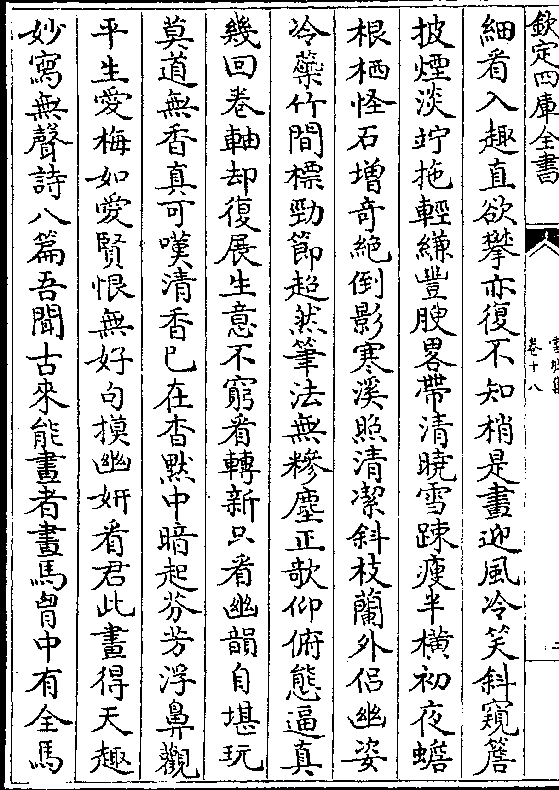 欽定四庫全書
卷十八
二
細看入趣直欲攀亦復不知梢是畫迎風冷笑斜窺簷
披煙淡竚拖輕縑豐腴畧帶清曉雪踈瘦半橫初夜蟾
根栖怪石增奇絶倒影寒溪照清潔斜枝蘭外侣幽姿
冷蘂竹間標勁節超然筆法無糝塵正欹仰俯態逼真
幾回卷軸却復展生意不窮看轉新只看幽韻自堪玩
莫道無香真可嘆清香已在杳黙中暗起芬芳浮鼻觀
平生愛梅如愛賢恨無好句摸幽妍看君此畫得天趣
妙寫無聲詩八篇吾聞古來能畫者畫馬胷中有全馬